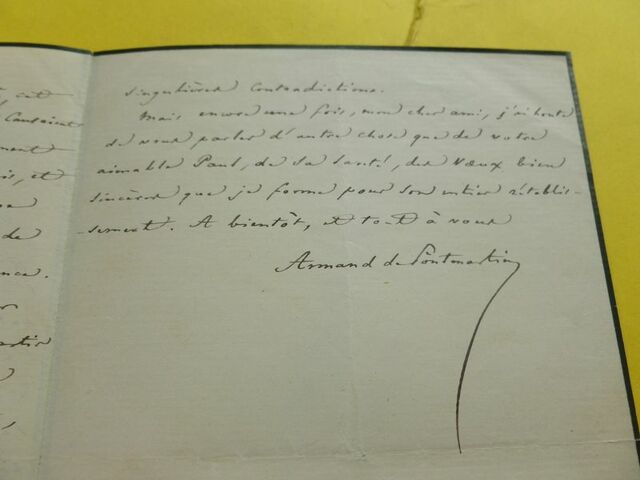 singulières contradictions.
Mais encore une fois, mon cher ami, j'ai honte
de vous parler d'autre chose que de votre
aimable Paul, de sa santé, des vœux bien
sincères que je forme pour son entier rétablis-
-sement. A bientôt, et tout à vous
Armand de Pontmartin
cet
causaient
ment
is, et
de
nce.